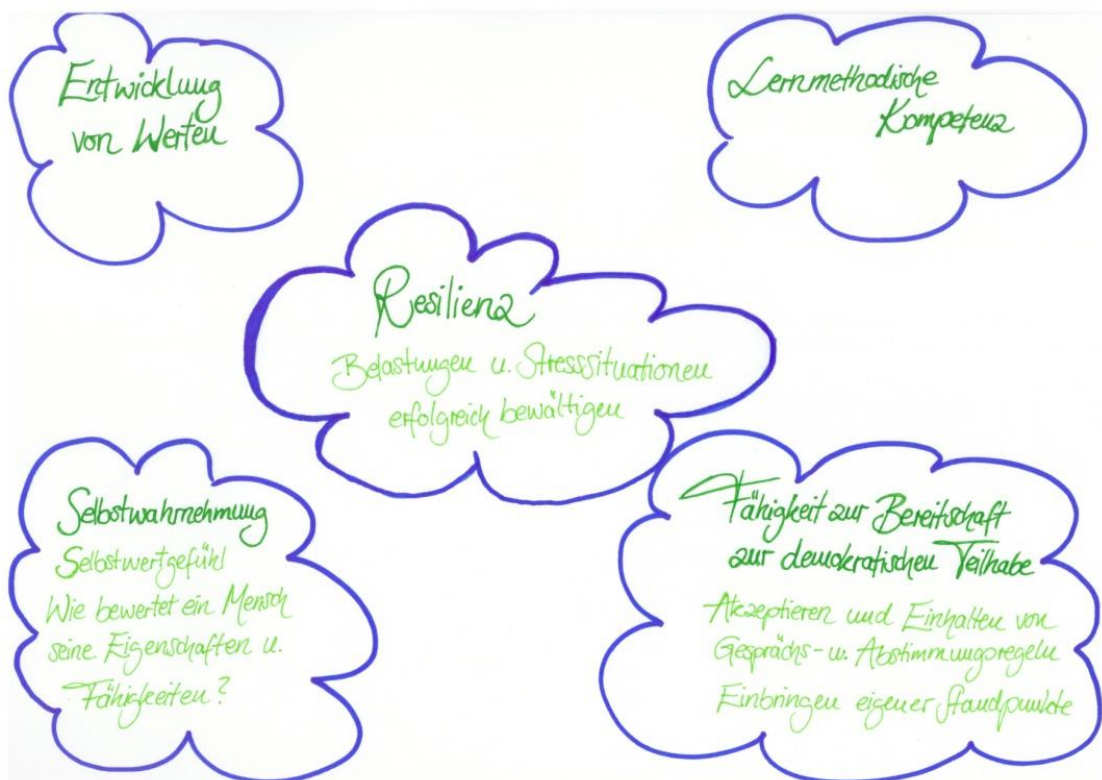 Entwicklung
von Werten
Lernmethodische
Kompetenz
Resilienz
Belastungen u. Stresssituationen
erfolgreich bewältigen
Selbstwahrnehmung
Selbstwertgefühl
Wie bewertet ein Mensch
seine Eigenschaften u.
Fähigkeiten?
Fähigkeit zur Bereitschaft
zur demokratischen Teilhabe
Akzeptieren und Einhalten von
Gesprächs- u. Abstimmungsregeln
Einbringen eigener Standpunkte